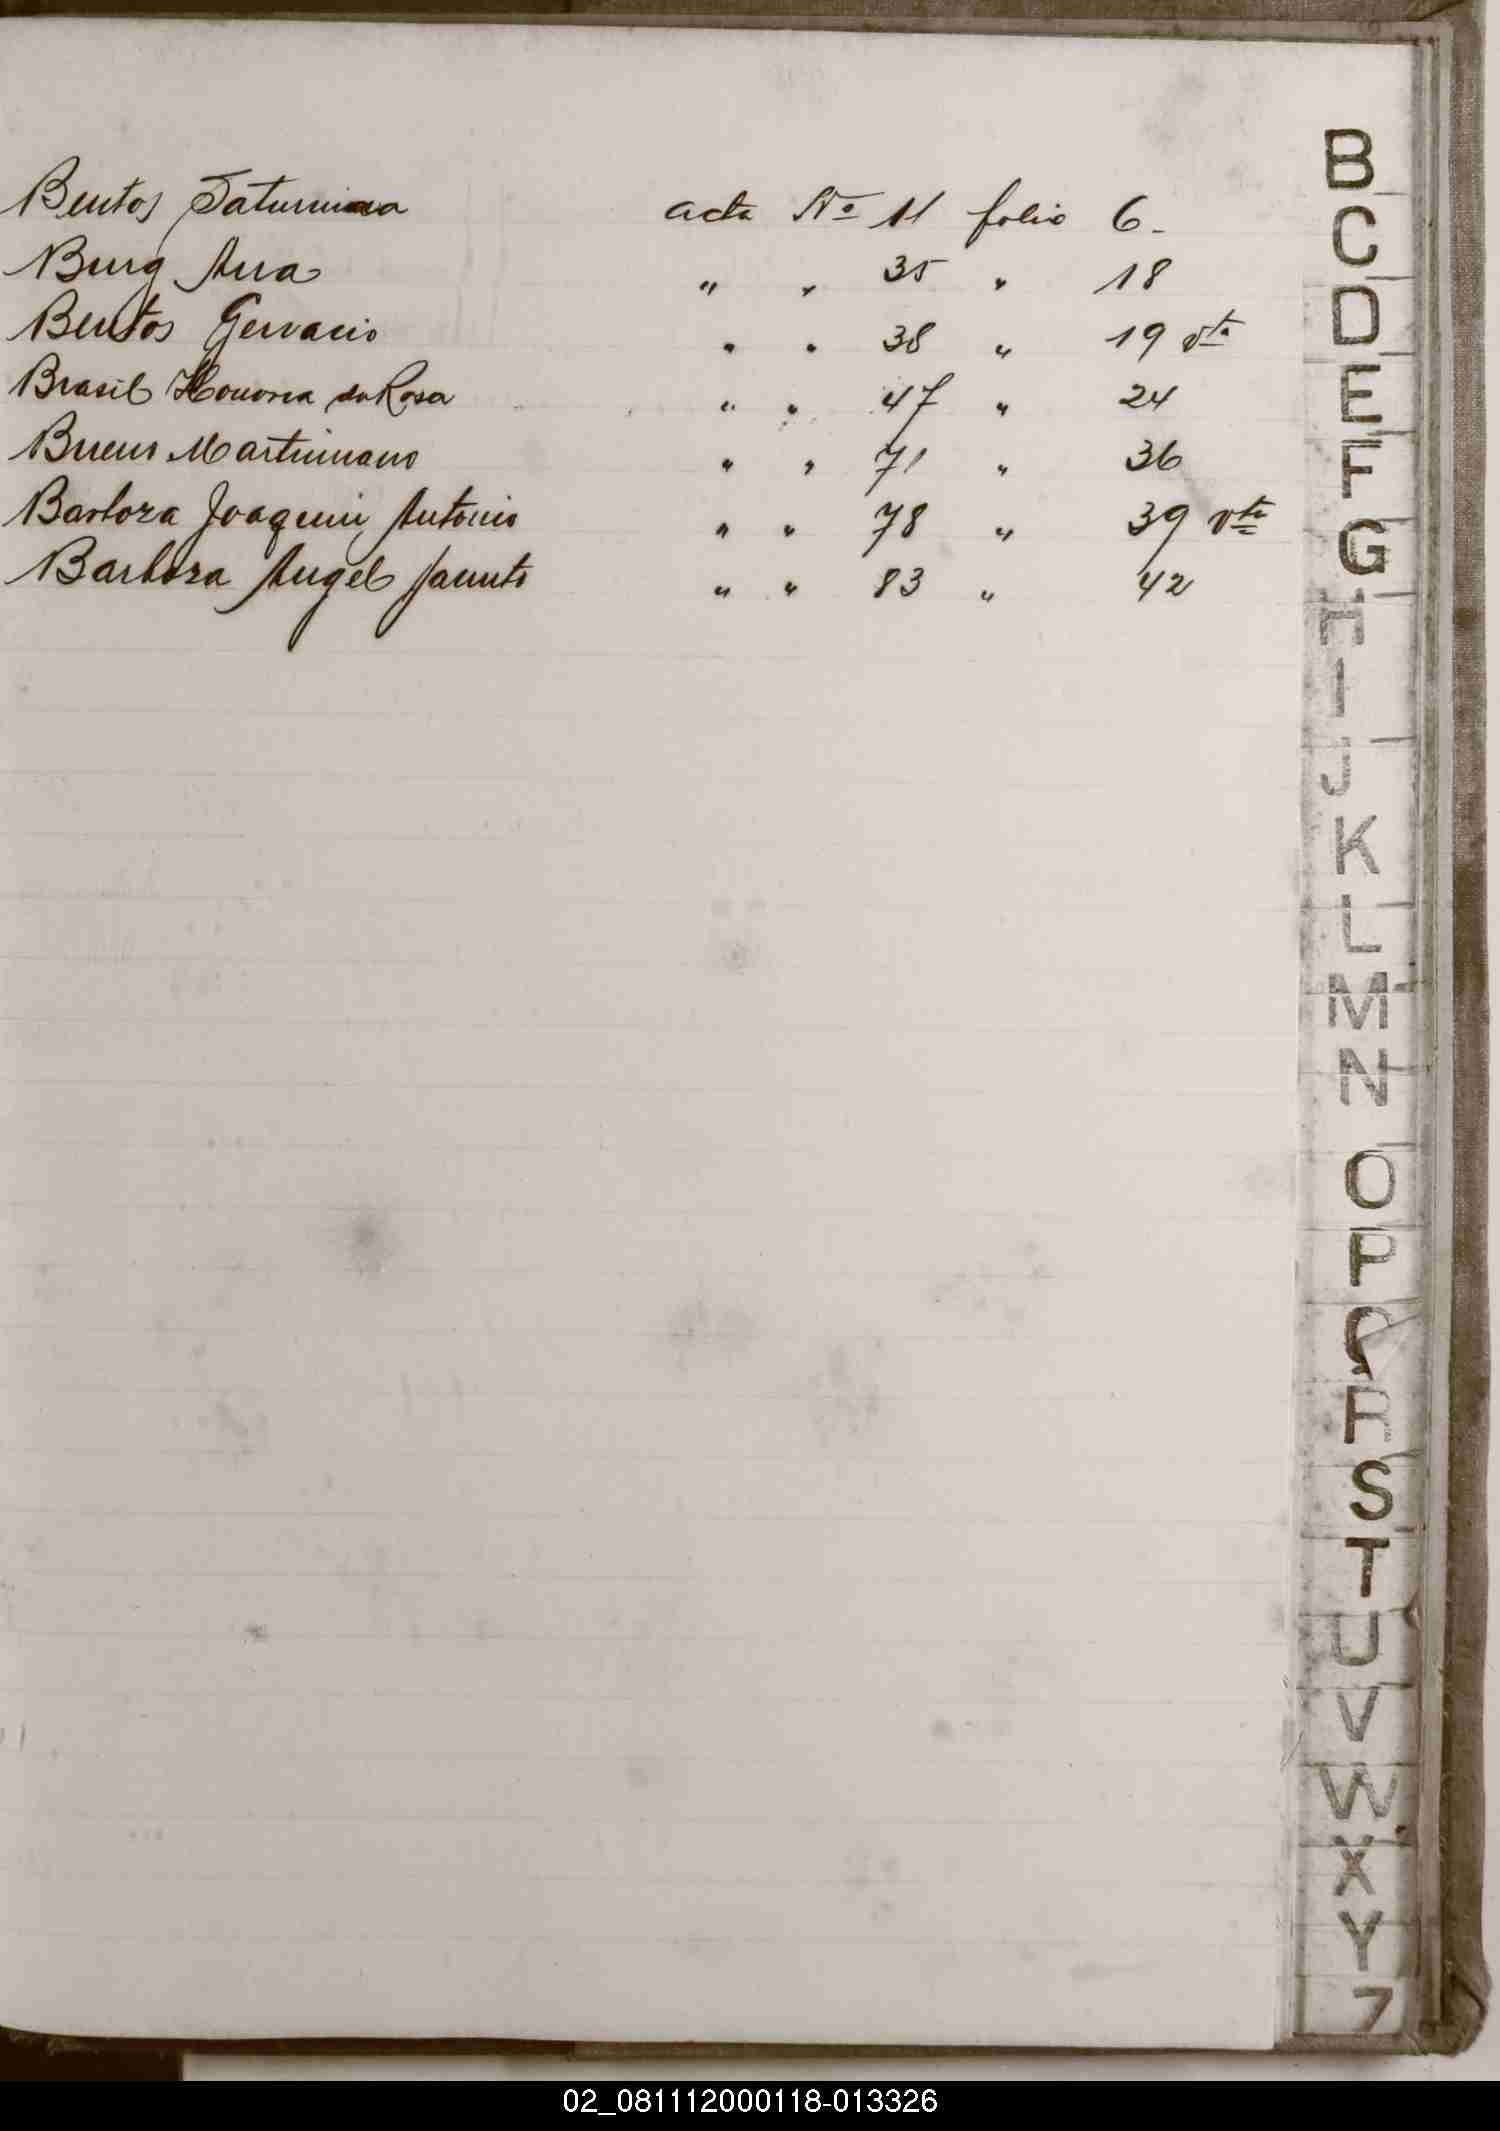 Bentos Saturnina acta Nº 11 folio 6-
Burg Ana " " 35 " 18
Bentos Gervacio " " 38 " 19 vta
Brasil Honoria da Rosa " " 47 " 24
Bueno Martiniano " " 71 " 36
Barboza Joaquin Antonio " " 78 " 39 vta
Barboza Angel Jacinto " " 83 " 42
B
C
D
E
F
G
H
I
J
K
L
M
N
O
P
Q
R
S
T
U
V
W
X
Y
Z
02_081112000118-013326